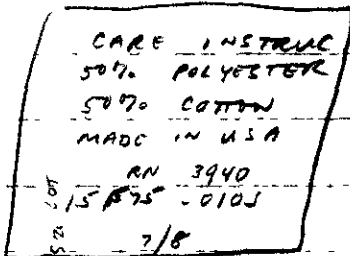 CARE INSTRUC
50% POLYESTER
50% COTTON
MADE IN USA
RN 3940
LOT
SZ
7/8